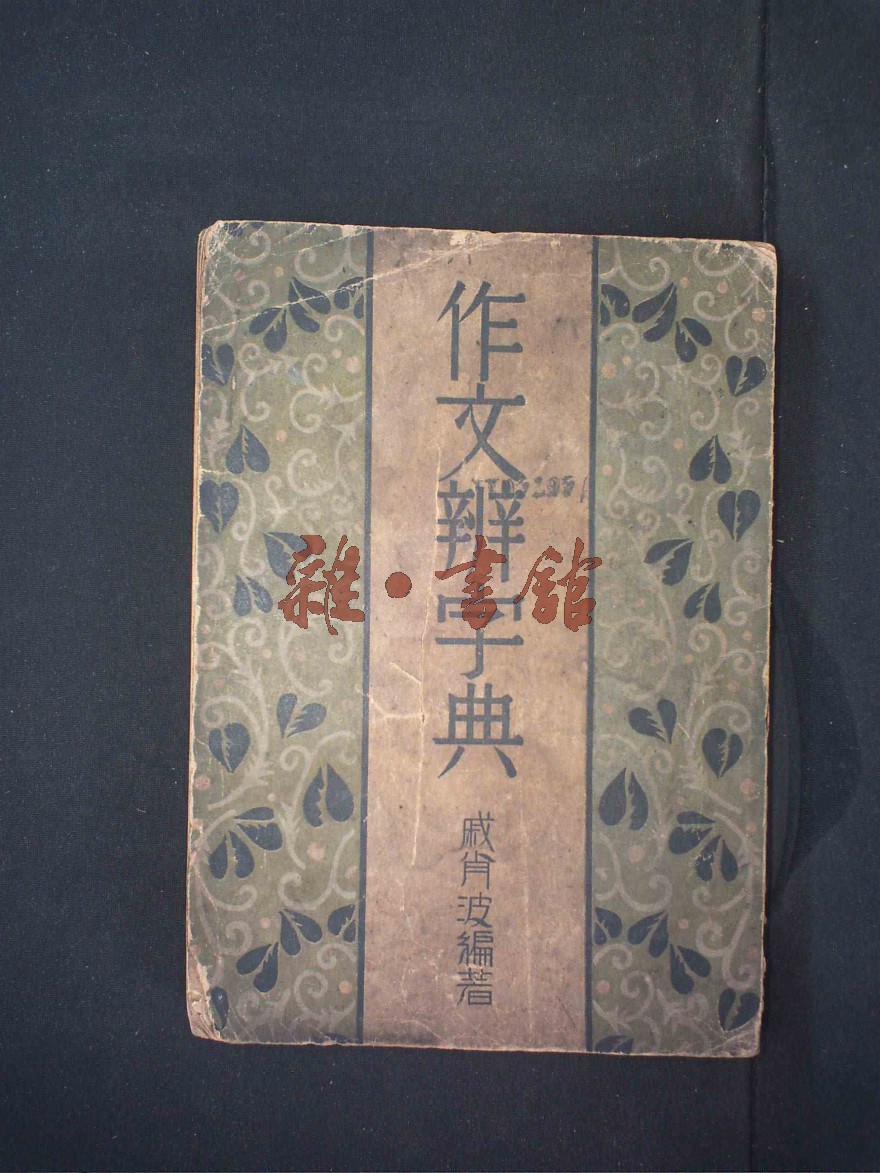 作文辨字典
戚肖波編著
雜·書館